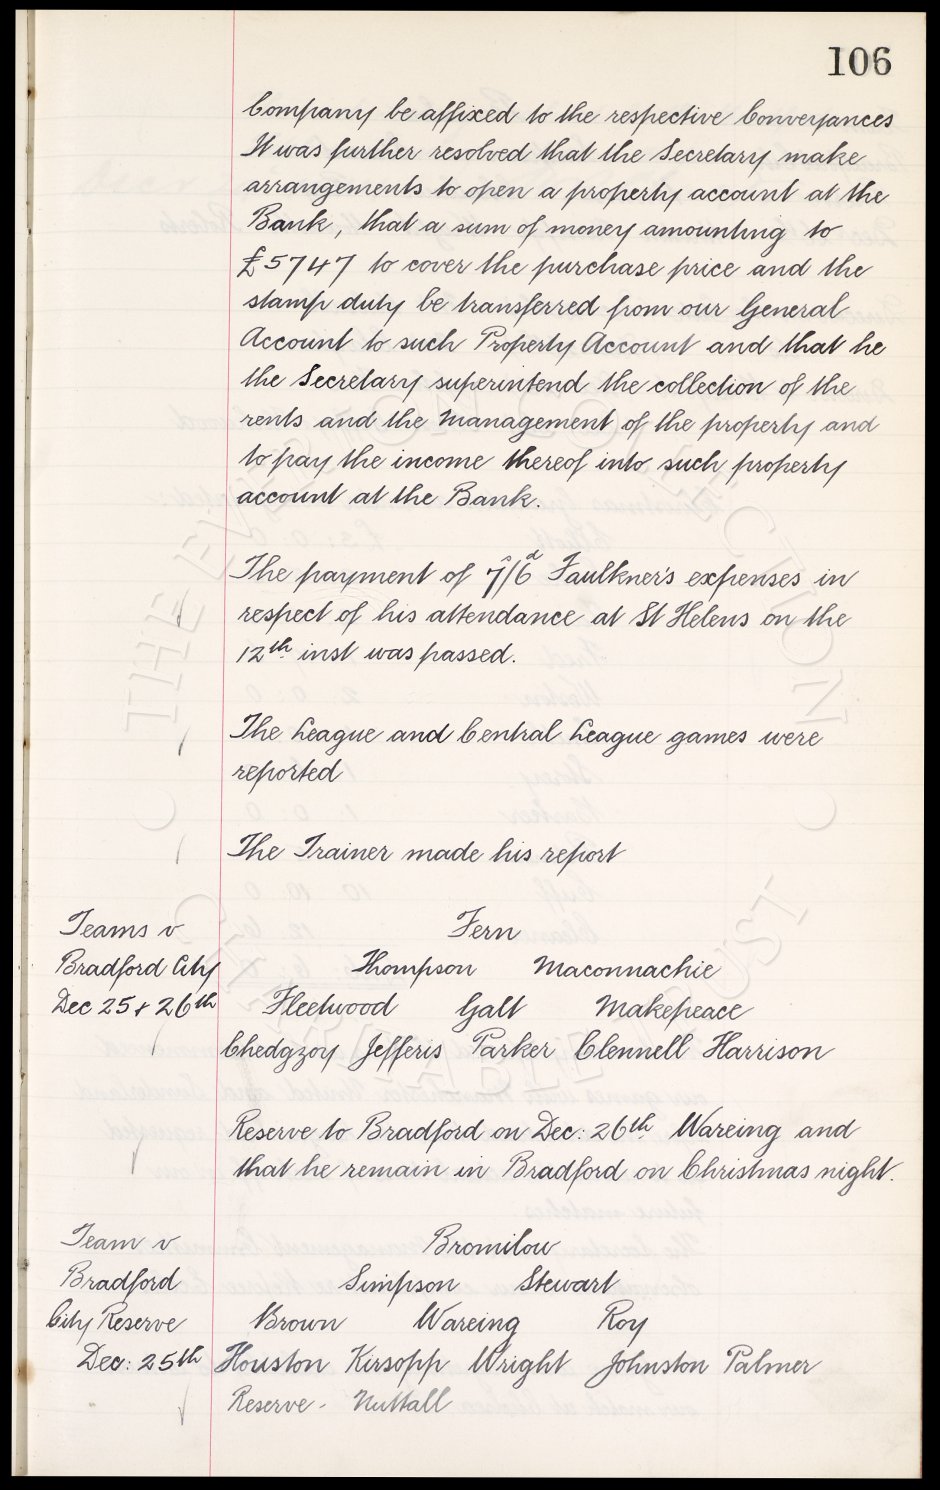 106
Company be affixed to the respective Conveyances
It was further resolved that the Secretary make
arrangements to open a property account at the
Bank, that a sum of money amounting to
£5747 to cover the purchase price and the
stamp duty be transferred from our General
Account to such Property Account and that he
the Secretary superintend the collection of the
rents and the management of the property and
to pay the income thereof into such property
account at the Bank.
The payment of 7s/6d Faulkner's expenses in
respect of his attendance at St Helens on the
12th inst was passed.
The League and Central League games were
reported
The Trainer made his report
Teams v Fern
Bradford City Thompson Maconnachie
Dec 25 & 26th Fleetwood Galt Makepeace
Chedgzoy Jefferis Parker Clennell Harrison
Reserve to Bradford on Dec: 26th. Wareing and
that he remain in Bradford on Christmas night.
Team v Bromilow
Bradford Simpson Stewart
City Reserve Brown Wareing Roy
Dec: 25th Houston Kirsopp Wright Johnston Palmer
Reserve - Nuttall
THE EVERTON COLLECTION CHARITABLE TRUST